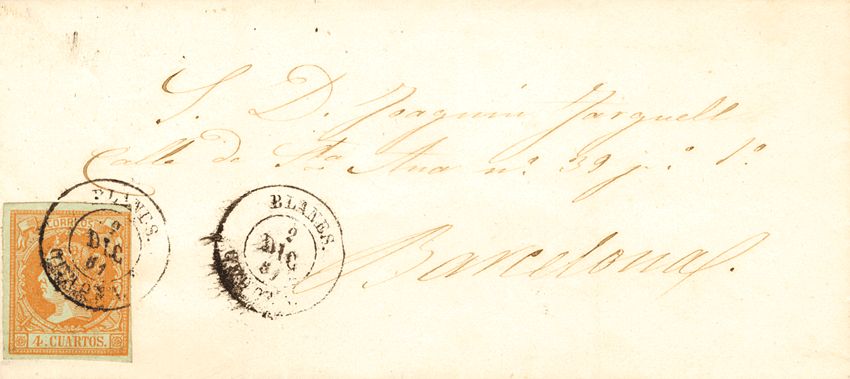 S. D. Joaquin
Calle de Sta Ana nº 39 pº 1º
Barcelona.
BLANES.
2
DIC
61
GERONA
BLANES.
2
DIC
61
GERONA
CORREOS
4. CUARTOS.